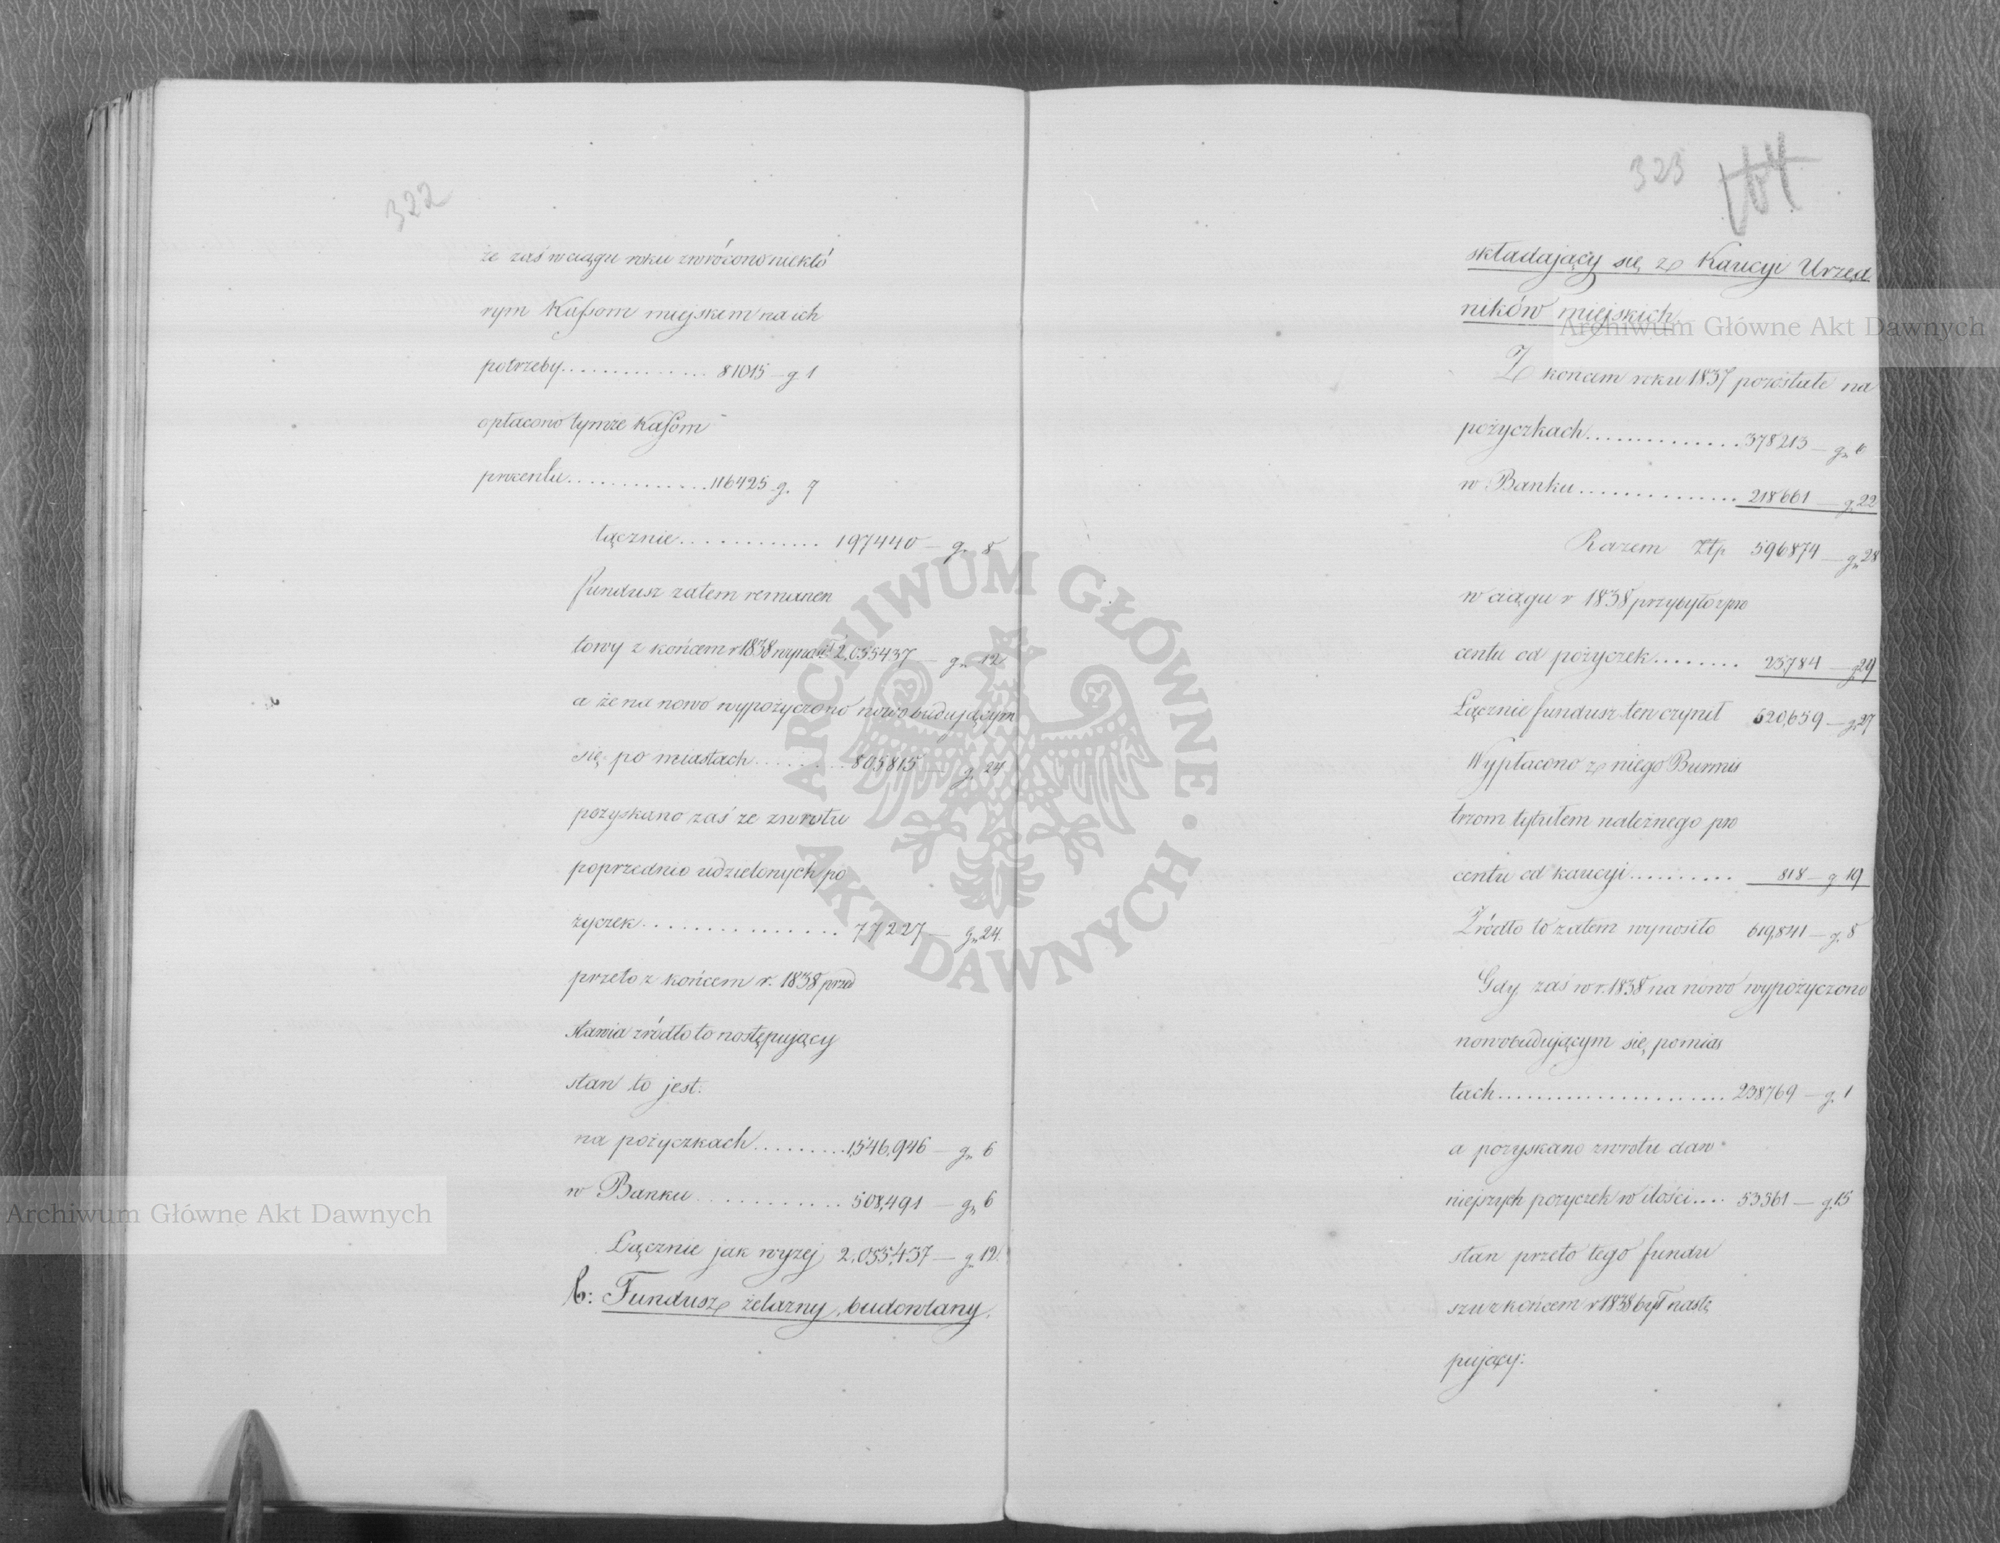 322
że zaś w ciągu roku zwrócono niektó
rym Kassom miejskim na ich
potrzeby.............. 81015 — g 1
opłacono tymże Kassom
procentu............. 116425 g. 7
łącznie............ 197440 — g. 8
fundusz zatem remanen
towy z końcem r 1838 wynosił 2,055437 — gr. 12
a że na nowo wypożyczono nowobudującym
się po miastach......... 805815 — g. 24
pozyskano zaś ze zwrotu
poprzednio udzielonych po
życzek............... 77227 — gr. 24.
przeto z końcem r. 1838 przed
stawia zródło to nostępujący
stan to jest:
na pożyczkach.........1,546,946 — gr. 6
w Banku............. 508,491 — gr. 6
Łącznie jak wyzej 2,055,437 — g. 12.
b: Fundusz żelazny budowlany.
323
164
składający się z Kaucyi Urzęd
ników miejskich.
Z koncem roku 1837 pozostałe na
pożyczkach.............. 378213 — gr. 6
w Banku............... 218661 — g. 22
Razem Złp 596874 — gr. 28
w ciągu r 1838 przybyło z pro
centu od pożyczek........ 23,784 — g 29
Łącznie fundusz ten czynił 620,659 — g. 27
Wypłacono z niego Burmis
trzom tytułem należnego pro
centu od kaucyi.......... 818 — g 19
Zródło to zatem wynosiło 619,841 — g. 8
Gdy zaś w r. 1838 na nowo wypożyczono
nowobudującym się po mias
tach...................... 238769 — g. 1
a pozyskano zwrotu daw
niejszych pozyczek w ilości.... 53561 — g. 15
stan przeto tego fundu
szu z końcem r 1838 był nastę
pujący:
Archiwum Główne Akt Dawnych
Archiwum Główne Akt Dawnych
ARCHIWUM GŁÓWNE · AKT DAWNYCH ·